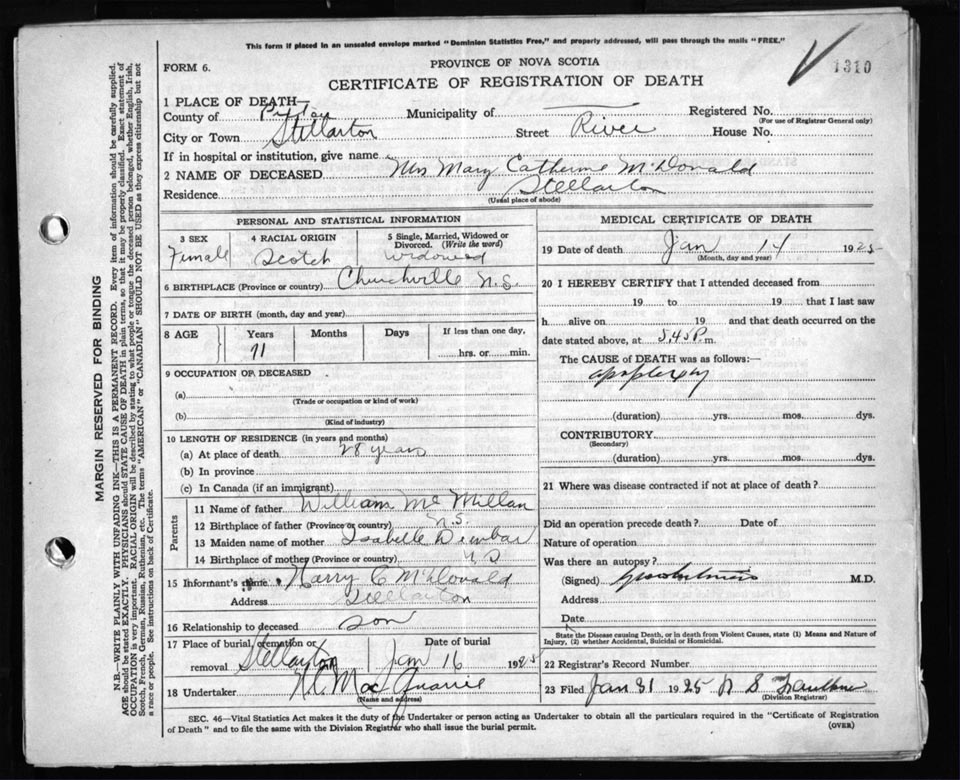 This form if placed in an unsealed envelope marked "Dominion Statistics Free," and properly addressed, will pass through the mails "FREE."
PROVINCE OF NOVA SCOTIA
1310
FORM 6.
CERTIFICATE OF REGISTRATION OF DEATH
1 PLACE OF DEATH—
County of Pictou Municipality of Registered No.
(For use of Registrar General only)
City or Town Stellarton Street River House No.
If in hospital or institution, give name
2 NAME OF DECEASED Mrs Mary Catherine McDonald
Residence Stellarton
(Usual place of abode)
PERSONAL AND STATISTICAL INFORMATION
3 SEX 4 RACIAL ORIGIN 5 Single, Married, Widowed or Divorced. (Write the word)
Female Scotch Widowed
6 BIRTHPLACE (Province or country) Churchville N.S.
7 DATE OF BIRTH (month, day and year)
8 AGE Years Months Days If less than one day,
71 hrs. or min.
9 OCCUPATION OF DECEASED
(a)
(Trade or occupation or kind of work)
(b)
(Kind of industry)
10 LENGTH OF RESIDENCE (in years and months)
(a) At place of death 28 years
(b) In province
(c) In Canada (if an immigrant)
Parents
11 Name of father William McMillan
12 Birthplace of father (Province or country) N.S.
13 Maiden name of mother Isabelle Dunbar
14 Birthplace of mother (Province or country) N S
15 Informant's name Harry C McDonald
Address Stellarton
16 Relationship to deceased son
17 Place of burial, cremation or removal Stellarton Date of burial Jan 16 1925
18 Undertaker MacQuarrie
(Name and address)
MEDICAL CERTIFICATE OF DEATH
19 Date of death Jan 14 1925
(Month, day and year)
20 I HEREBY CERTIFY that I attended deceased from
19 to 19 that I last saw
h alive on 19 and that death occurred on the
date stated above, at 5.45 P. m.
The CAUSE of DEATH was as follows:—
apoplexy
(duration) yrs. mos. dys.
CONTRIBUTORY
(Secondary)
(duration) yrs. mos. dys.
21 Where was disease contracted if not at place of death?
Did an operation precede death? Date of
Nature of operation
Was there an autopsy?
(Signed) M.D.
Address
Date
State the Disease causing Death, or in death from Violent Causes, state (1) Means and Nature of
Injury, (2) whether Accidental, Suicidal or Homicidal.
22 Registrar's Record Number
23 Filed Jan 31 1925
(Division Registrar)
SEC. 46—Vital Statistics Act makes it the duty of the Undertaker or person acting as Undertaker to obtain all the particulars required in the "Certificate of Registration
of Death" and to file the same with the Division Registrar who shall issue the burial permit.
(OVER)
MARGIN RESERVED FOR BINDING
N.B.—WRITE PLAINLY WITH UNFADING INK—THIS IS A PERMANENT RECORD. Every item of information should be carefully supplied.
AGE should be stated EXACTLY. PHYSICIANS should STATE CAUSE OF DEATH in plain terms, so that it may be properly classified. Exact statement of
OCCUPATION is very important. RACIAL ORIGIN will be described by stating to what people or tongue the deceased person belonged, whether English, Irish,
Scotch, French, German, Russian, Ruthenian, etc. The terms "AMERICAN" or "CANADIAN" SHOULD NOT BE USED as they express citizenship but not
a race or people. See instructions on back of Certificate.